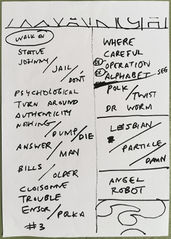 WALK ON
STATUE
JOHNNY
JAIL/DON'T
PSYCHOLOGICAL
TURN AROUND
AUTHENTICITY
NOTHING
PUMP/DIE
ANSWER/MAN
BILLS/OLDER
CLOISONNE
TROUBLE
ENSOR/POLKA
#3
WHERE
CAREFUL
OPERATION
ALPHABET - SEE
POLK/TWIST
DR WORM
LESBIAN
PARTICLE
DAMN
ANGEL
ROBOT